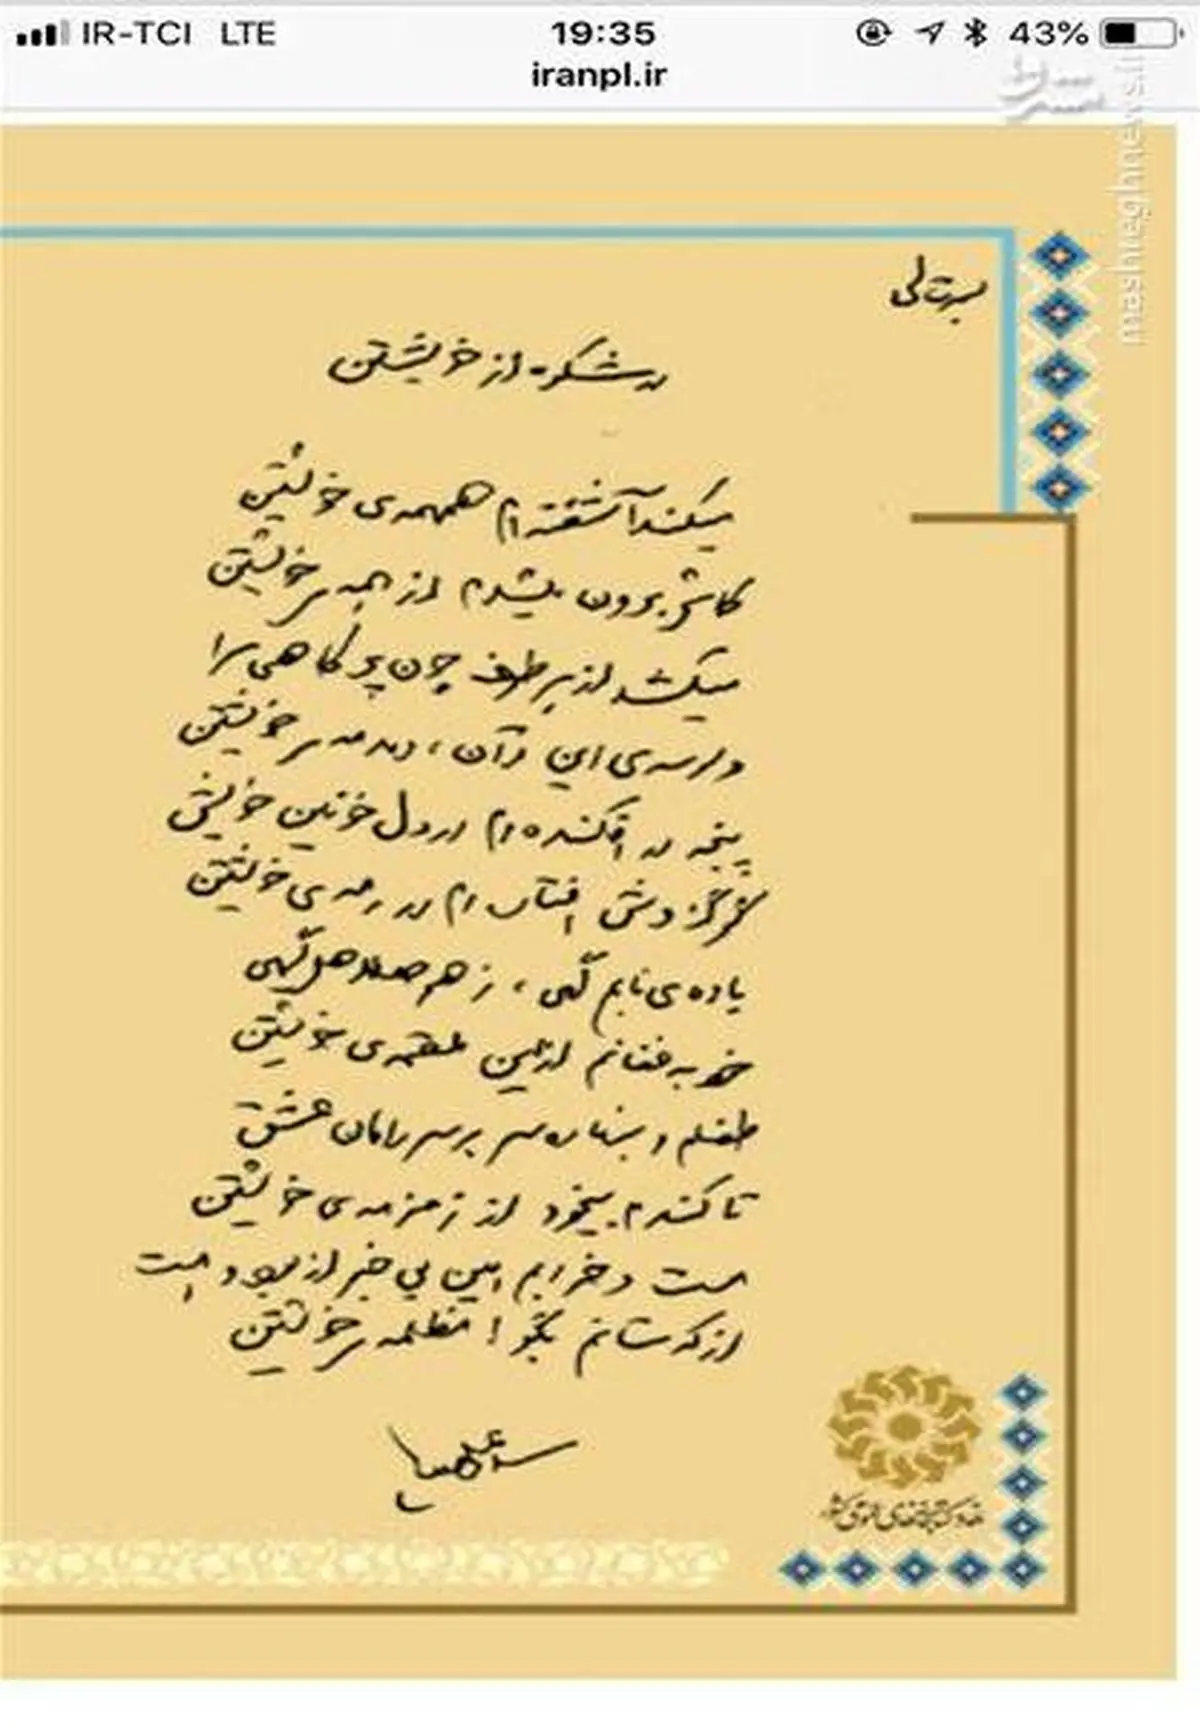 IR-TCI LTE 19:35 43%
iranpl.ir
مشرق
mashreghnews.ir
بسمه‌تعالی
در شکوه از خویشتن
میکند آشفته‌ام همهمه‌ی خویشتن
کاش برون میشدم از همه‌ی خویشتن
میکشد از هر طرف چون پر کاهی مرا
وسوسه‌ی این و آن، دمدمه‌ی خویشتن
پنجه در افکنده‌ام در دل خونین خویش
گرگم و افتاده‌ام در رمه‌ی خویشتن
باده‌ی نابم گهی، زهر هلاهل گهی
خود به فغانم از این ملقمه‌ی خویشتن
طفلم و بنهاده سر بر سر دامان عشق
تا کندم بیخود از زمزمه‌ی خویشتن
مست و خرابم امین بی خبر از بود و هست
از که ستانم بگو! مظلمه‌ی خویشتن
نهاد کتابخانه‌های عمومی کشور